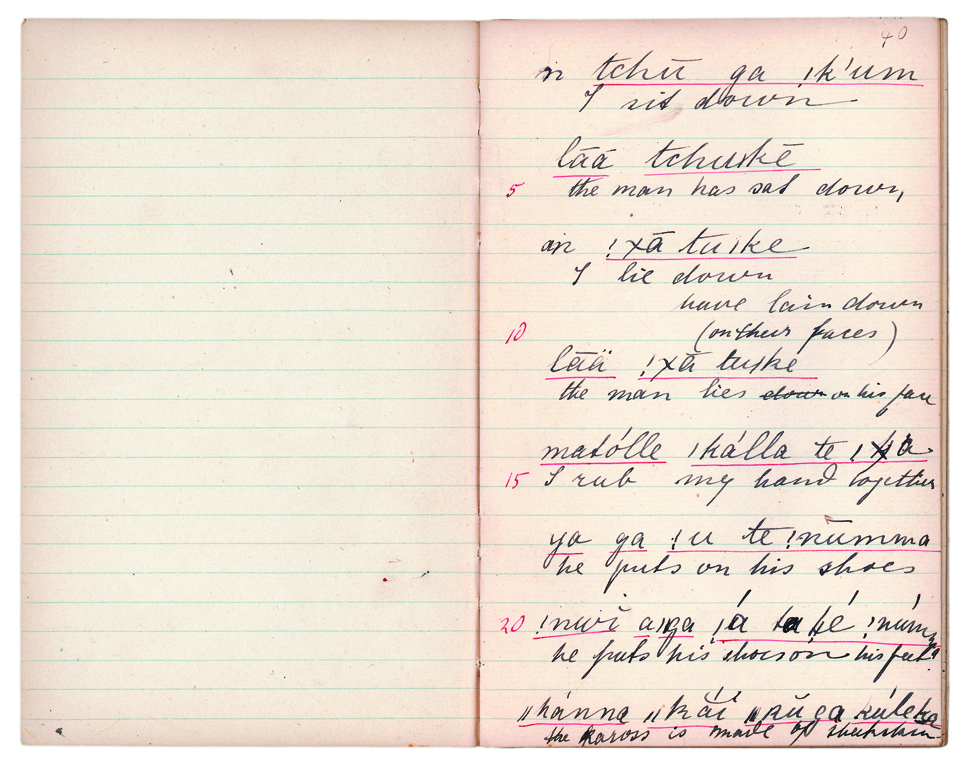 40
n tchū ga ık'um
I sit down
lāā tchuskē
5 the man has sat down,
an !χā tuıke
I lie down
have lain down
10 (on their faces)
lāä !χā tuıke
the man lies down on his face
matólle ıkálla te
15 I rub my hand together
ya ga !u te !nūmma
he puts on his shoes
20 !nwĭ
he puts his shoes on his feet
ıı kánna ıı kăí
the kaross is made of sheepskin